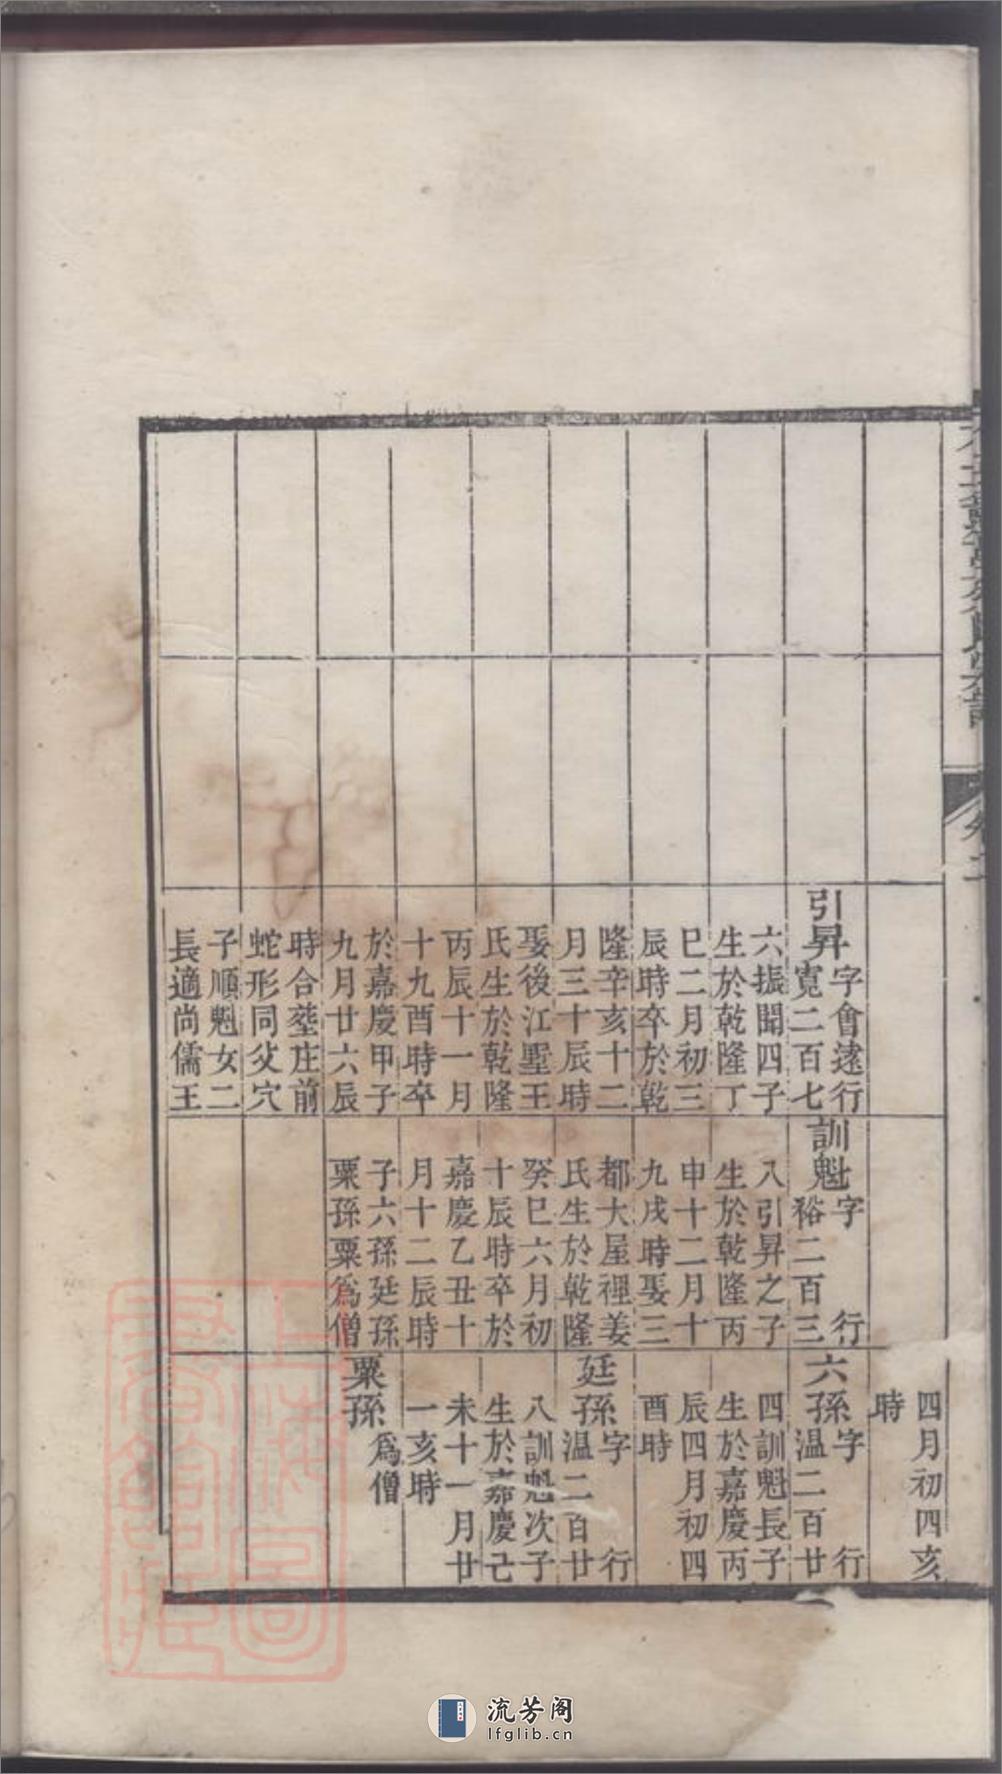 卷二
引昇
字會遠行
寬二百七
六振聞四子
生於乾隆丁
巳二月初三
辰時卒於乾
隆辛亥十二
月三十辰時
娶後江墅王
氏生於乾隆
丙辰十一月
十九酉時卒
於嘉慶甲子
九月廿六辰
時合塟庄前
蛇形同父穴
子順魁女二
長適尚儒王
訓魁
字　行
裕二百三
八引昇之子
生於乾隆丙
申十二月十
九戌時娶三
都大屋裡姜
氏生於乾隆
癸巳六月初
十辰時卒於
嘉慶乙丑十
月十二辰時
子六孫廷孫
粟孫粟爲僧
四月初四亥
時
六孫
字　行
温二百廿
四訓魁長子
生於嘉慶丙
辰四月初四
酉時
廷孫
字　行
温二百廿
八訓魁次子
生於嘉慶己
未十一月廿
一亥時
粟孫
爲僧
流芳阁
lfglib.cn